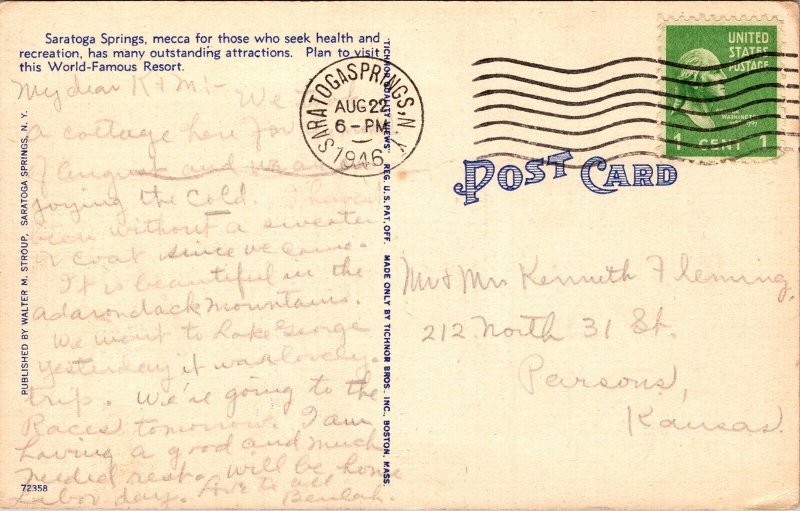 Saratoga Springs, mecca for those who seek health and
recreation, has many outstanding attractions. Plan to visit
this World-Famous Resort.
My dear K & M:- We
a cottage here for
of August and we are
joying the cold. I haven't
been without a sweater
or coat since we came.
It is beautiful in the
adarondack mountains.
We went to Lake George
yesterday it was a lovely
trip. We're going to the
Races tomorrow. I am
having a good and much
needed rest. will be home
Labor day. Love to all
Beulah.
72358
PUBLISHED BY WALTER M. STROUP, SARATOGA SPRINGS, N. Y.
"TICHNOR QUALITY VIEWS" REG. U. S. PAT. OFF. MADE ONLY BY TICHNOR BROS. INC., BOSTON, MASS.
SARATOGA SPRINGS, N.Y.
AUG 22
6 - PM
1946
UNITED
STATES
POSTAGE
WASHINGTON
1 CENT 1
POST CARD
Mr & Mrs Kenneth Fleming,
212 North 31 St.
Parsons,
Kansas.